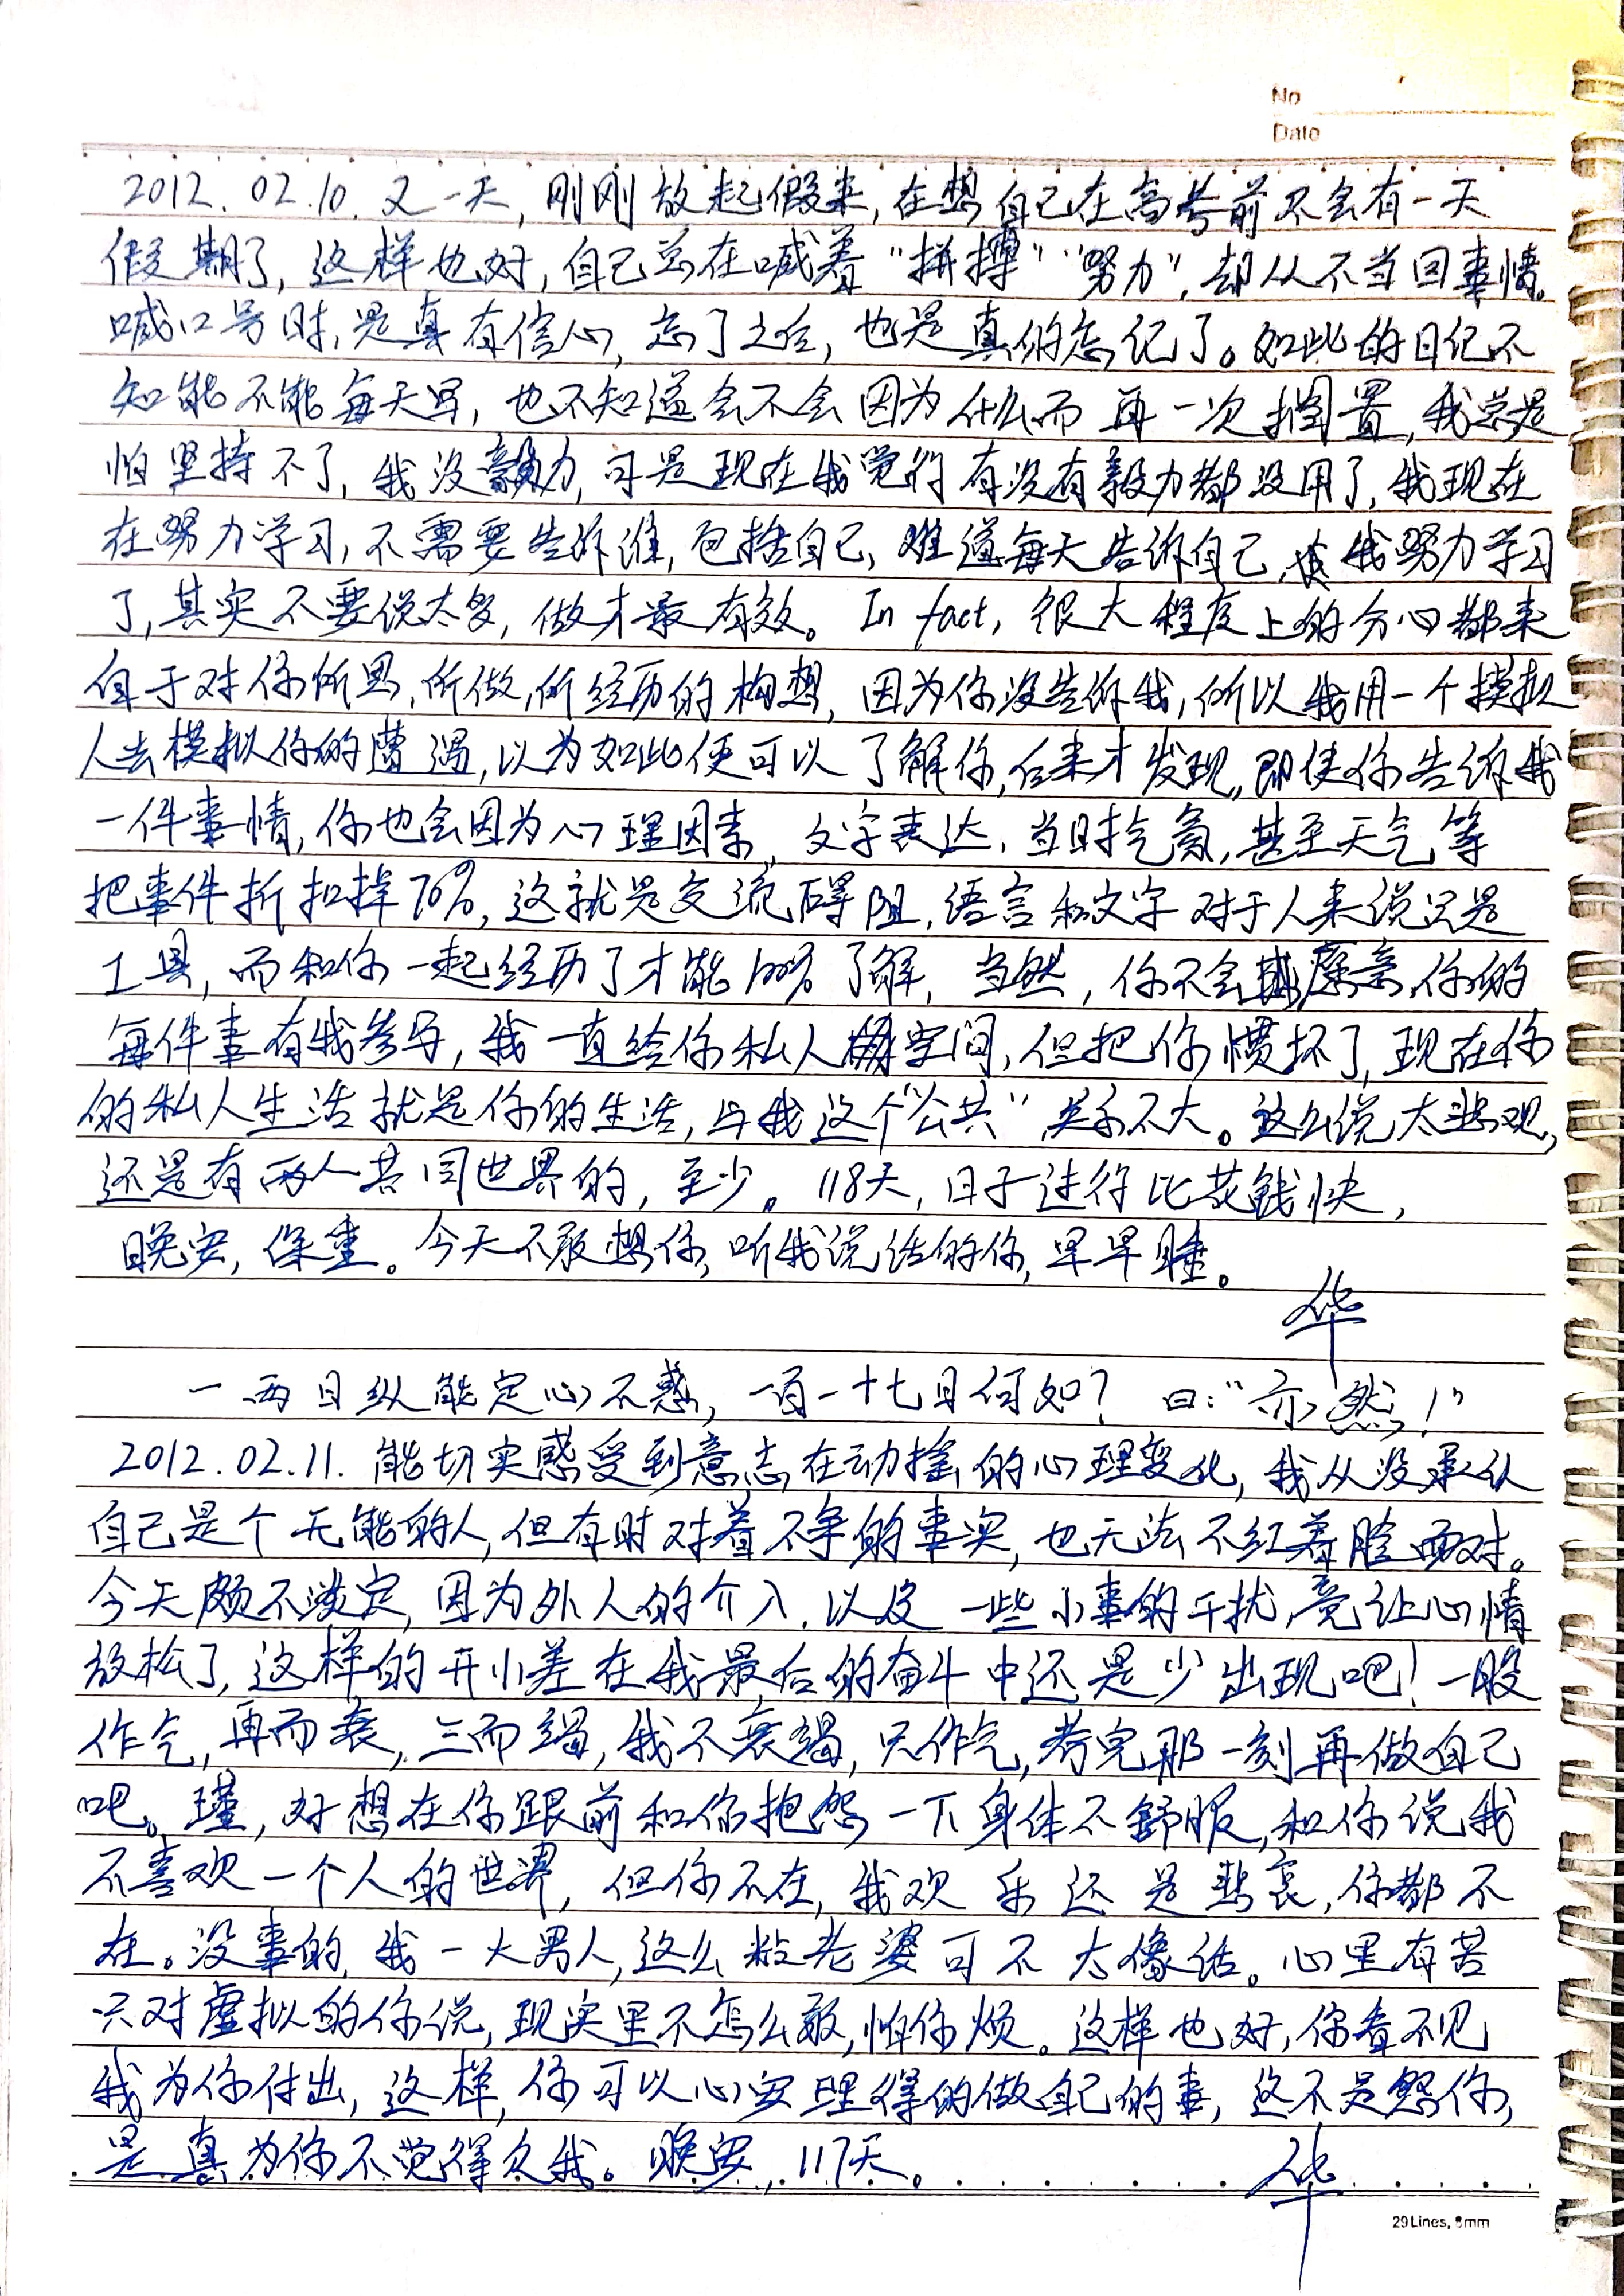 No
Date
2012.02.10. 又一天,刚刚放起假来,在想自己在高考前不会有一天
假期了,这样也好,自己总在喊着"拼搏""努力",却从不当回事情。
喊口号时,是真有信心,忘了之后,也是真的忘记了。如此的日记不
知能不能每天写,也不知道会不会因为什么而再一次搁置,我总是
怕坚持不了,我没毅力,可是现在我觉得有没有毅力都没用了,我现在
在努力学习,不需要告诉谁,包括自己,难道每天告诉自己,我努力学习
了,其实不要说太多,做才最有效。In fact,很大程度上的分心都来
自于对你所思,所做,所经历的构想,因为你没告诉我,所以我用一个模拟
人去模拟你的遭遇,以为如此便可以了解你,后来才发现,即使你告诉我
一件事情,你也会因为心理因素,文字表达,当时气氛,甚至天气等
把事件折扣掉70%,这就是交流碍阻,语言和文字对于人来说只是
工具,而和你一起经历了才能100%了解,当然,你不会愿意你的
每件事有我参与,我一直给你私人空间,但把你惯坏了,现在你
的私人生活就是你的生活,与我这个"公共"关系不大。这么说太悲观,
还是有两人共同世界的,至少。118天,日子过得比花钱快,
晚安,保重。今天不敢想你,听我说话的你,早早睡。
华
一两日纵能定心不惑,一百一十七日何如?曰:"亦然!"
2012.02.11. 能切实感受到意志在动摇的心理变化,我从没承认
自己是个无能的人,但有时对着不争的事实,也无法不红着脸面对。
今天颇不淡定,因为外人的介入,以及一些小事的干扰,竟让心情
放松了,这样的开小差在我最后的奋斗中还是少出现吧!一股
作气,再而衰,三而竭,我不衰竭,只作气,考完那一刻再做自己
吧。瑾,好想在你跟前和你抱怨一下身体不舒服,和你说我
不喜欢一个人的世界,但你不在,我欢乐还是悲哀,你都不
在。没事的,我一大男人,这么粘老婆可不太像话。心里有苦
只对虚拟的你说,现实里不怎么敢,怕你烦。这样也好,你看不见
我为你付出,这样,你可以心安理得的做自己的事,这不是怨你,
是真为你不觉得欠我。晚安,117天。
华
29 Lines, 8mm